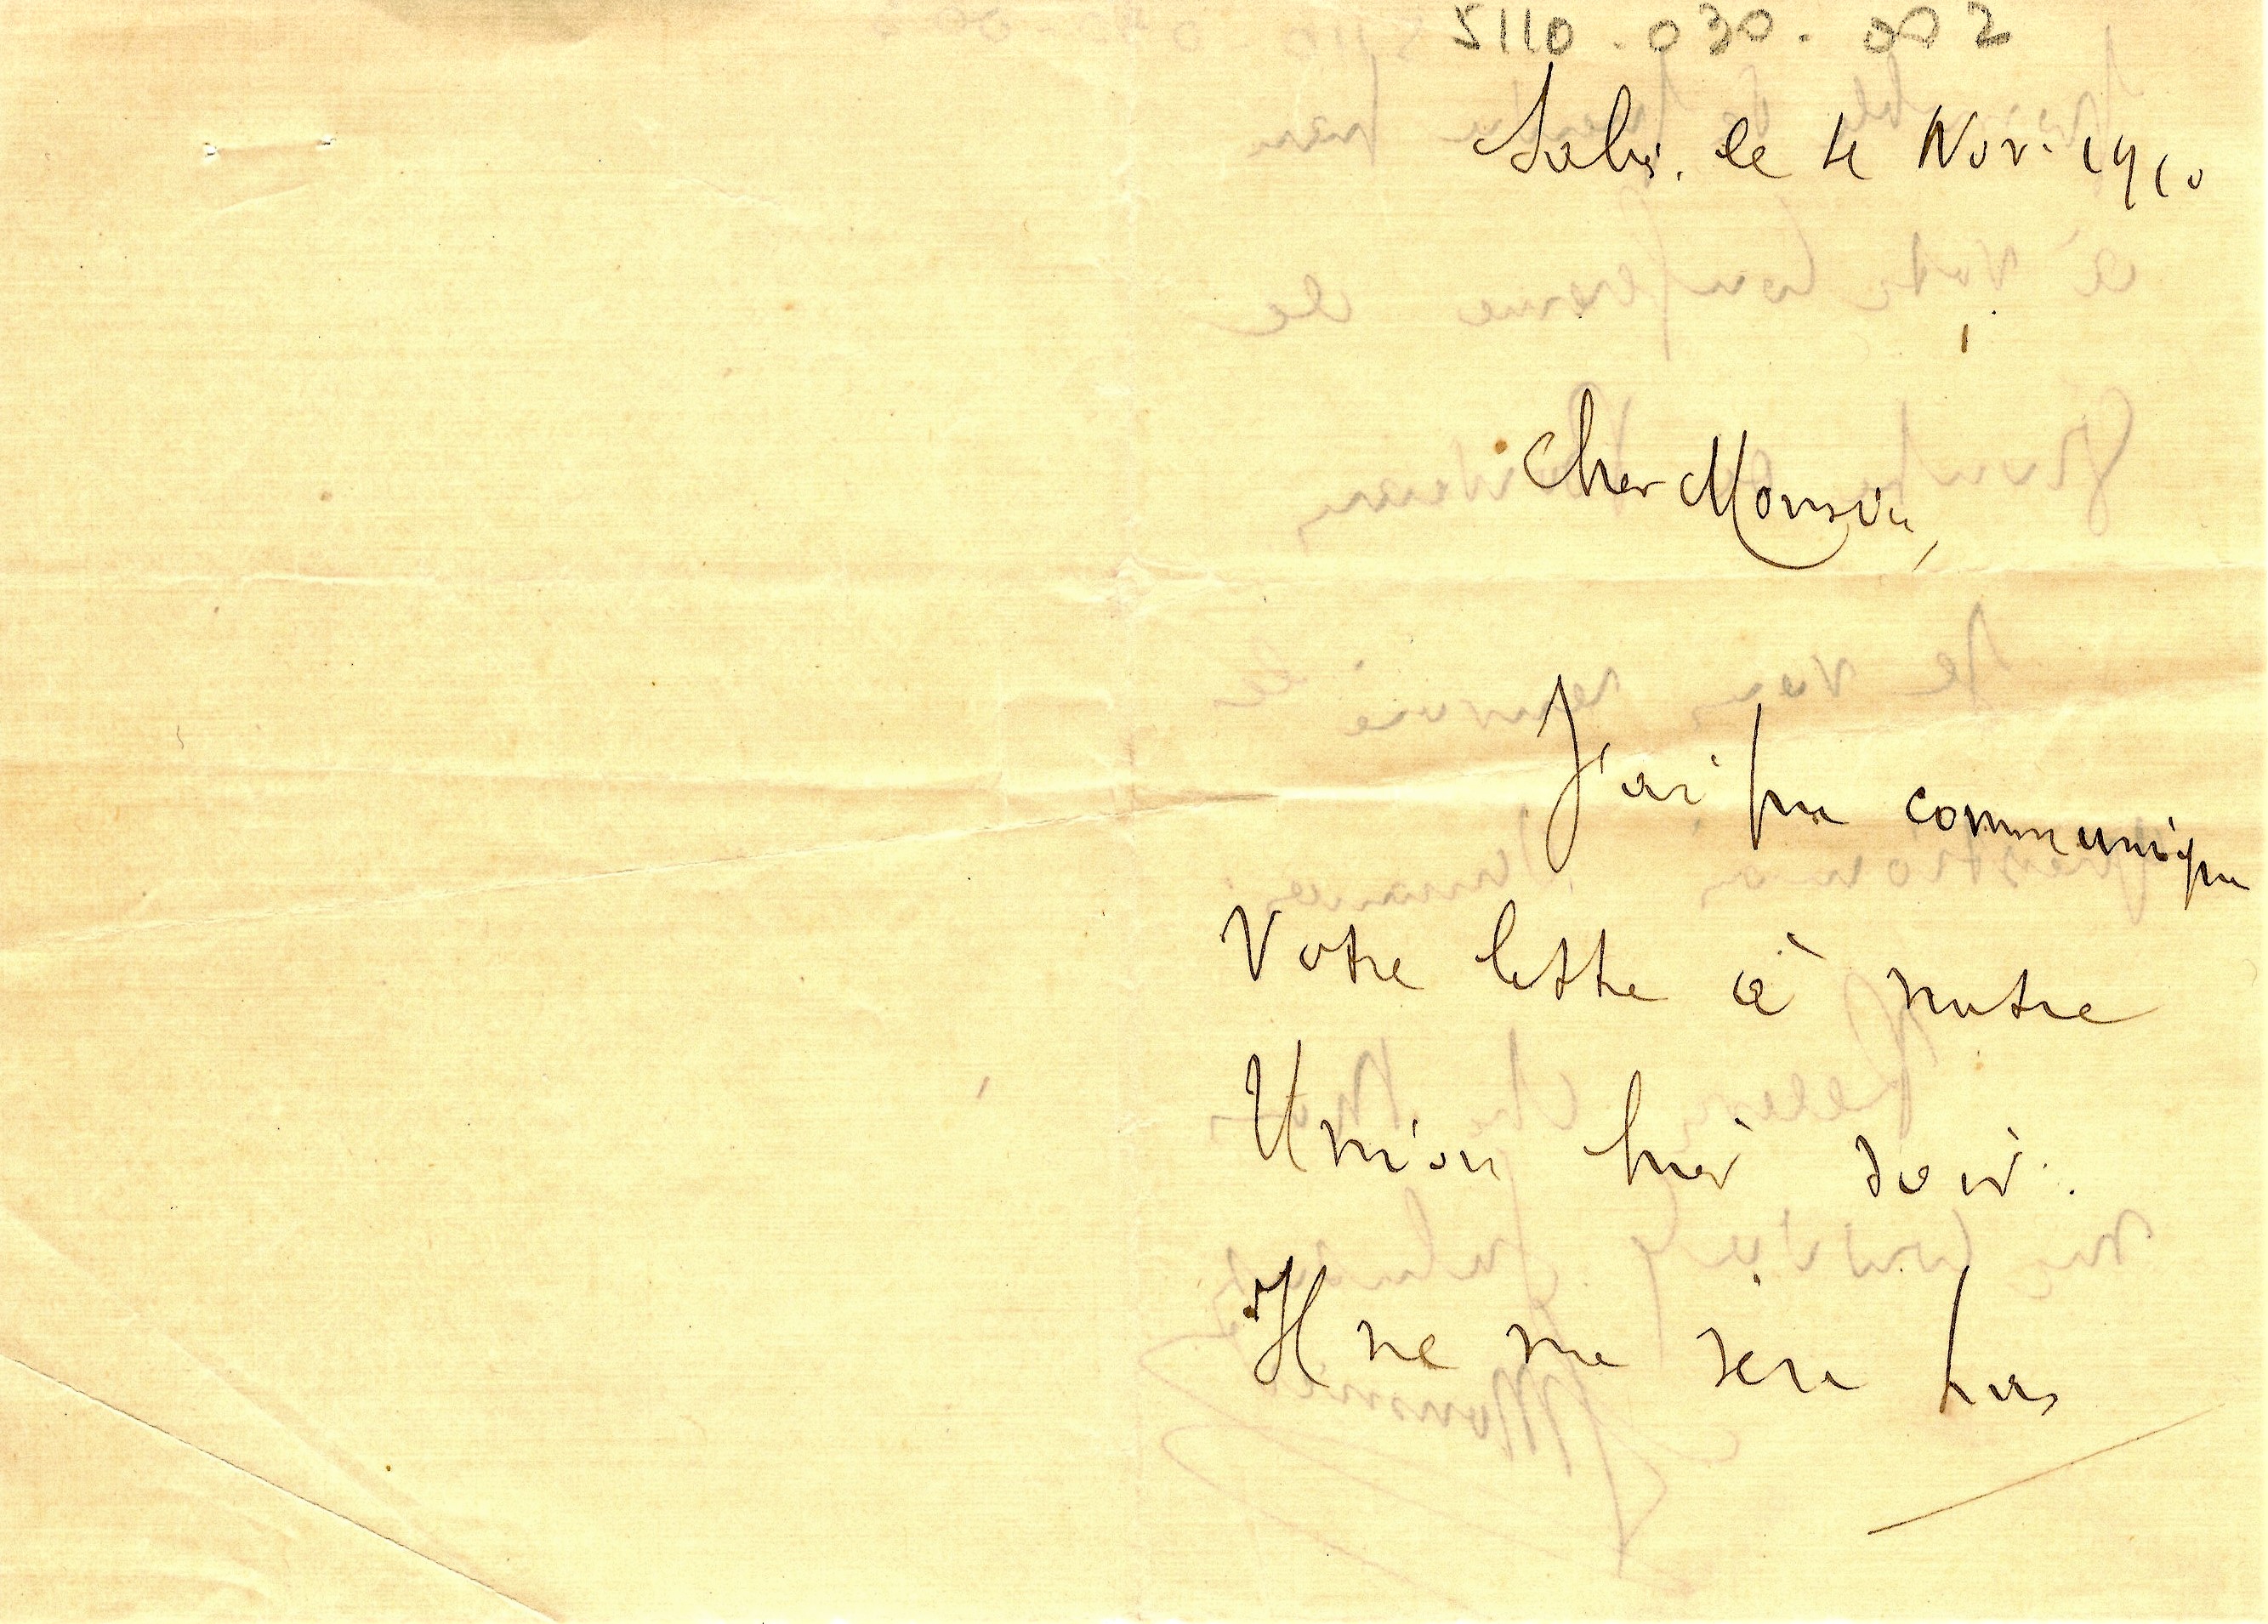 5110.030.002
le 4 Nov. 1910
Cher Monsieur,
J'ai pu communiquer
Votre lettre à notre
Union hier soir.
Il ne me sera pas